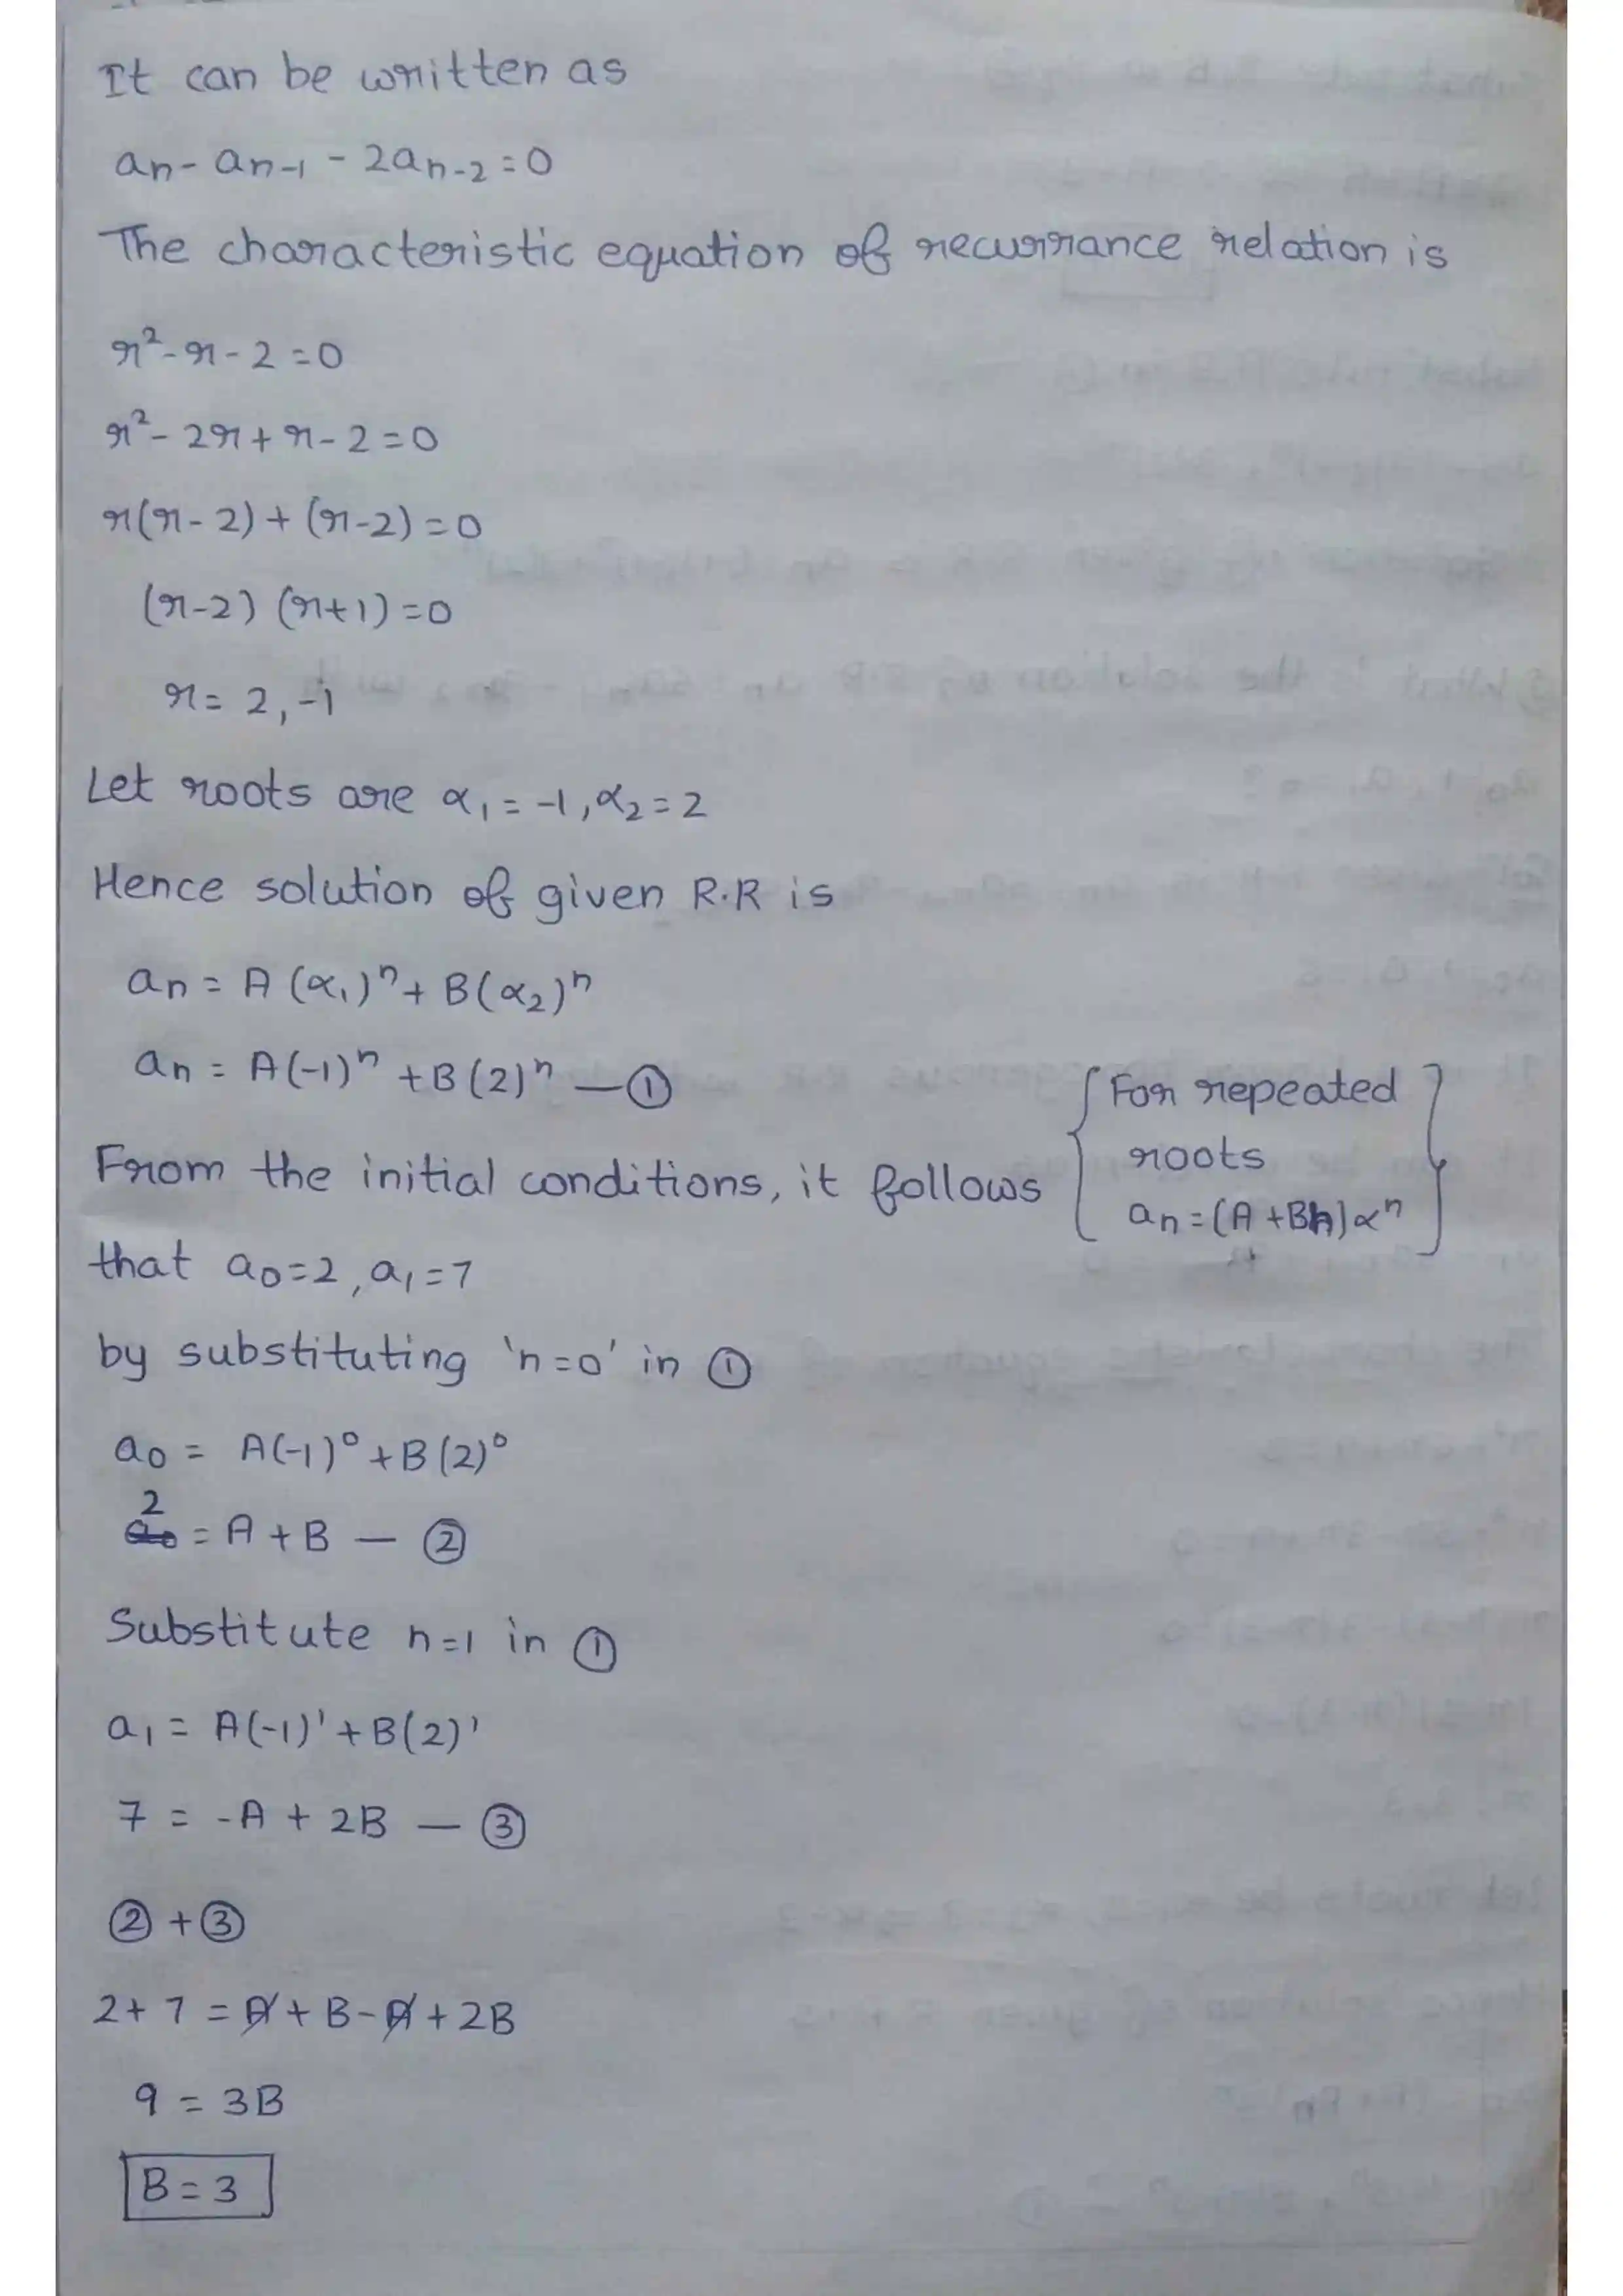 It can be written as
an - an-1 - 2an-2 = 0
The characteristic equation of recurrance relation is
r² - r - 2 = 0
r² - 2r + r - 2 = 0
r(r - 2) + (r - 2) = 0
(r - 2) (r + 1) = 0
r = 2, -1
Let roots are α₁ = -1, α₂ = 2
Hence solution of given R.R is
an = A(α₁)ⁿ + B(α₂)ⁿ
an = A(-1)ⁿ + B(2)ⁿ — ①
{ For repeated
roots
an = (A + Bn)αⁿ }
From the initial conditions, it follows
that a₀ = 2, a₁ = 7
by substituting 'n = 0' in ①
a₀ = A(-1)⁰ + B(2)⁰
2 = A + B — ②
Substitute n = 1 in ①
a₁ = A(-1)¹ + B(2)¹
7 = -A + 2B — ③
② + ③
2 + 7 = A + B - A + 2B
9 = 3B
B = 3